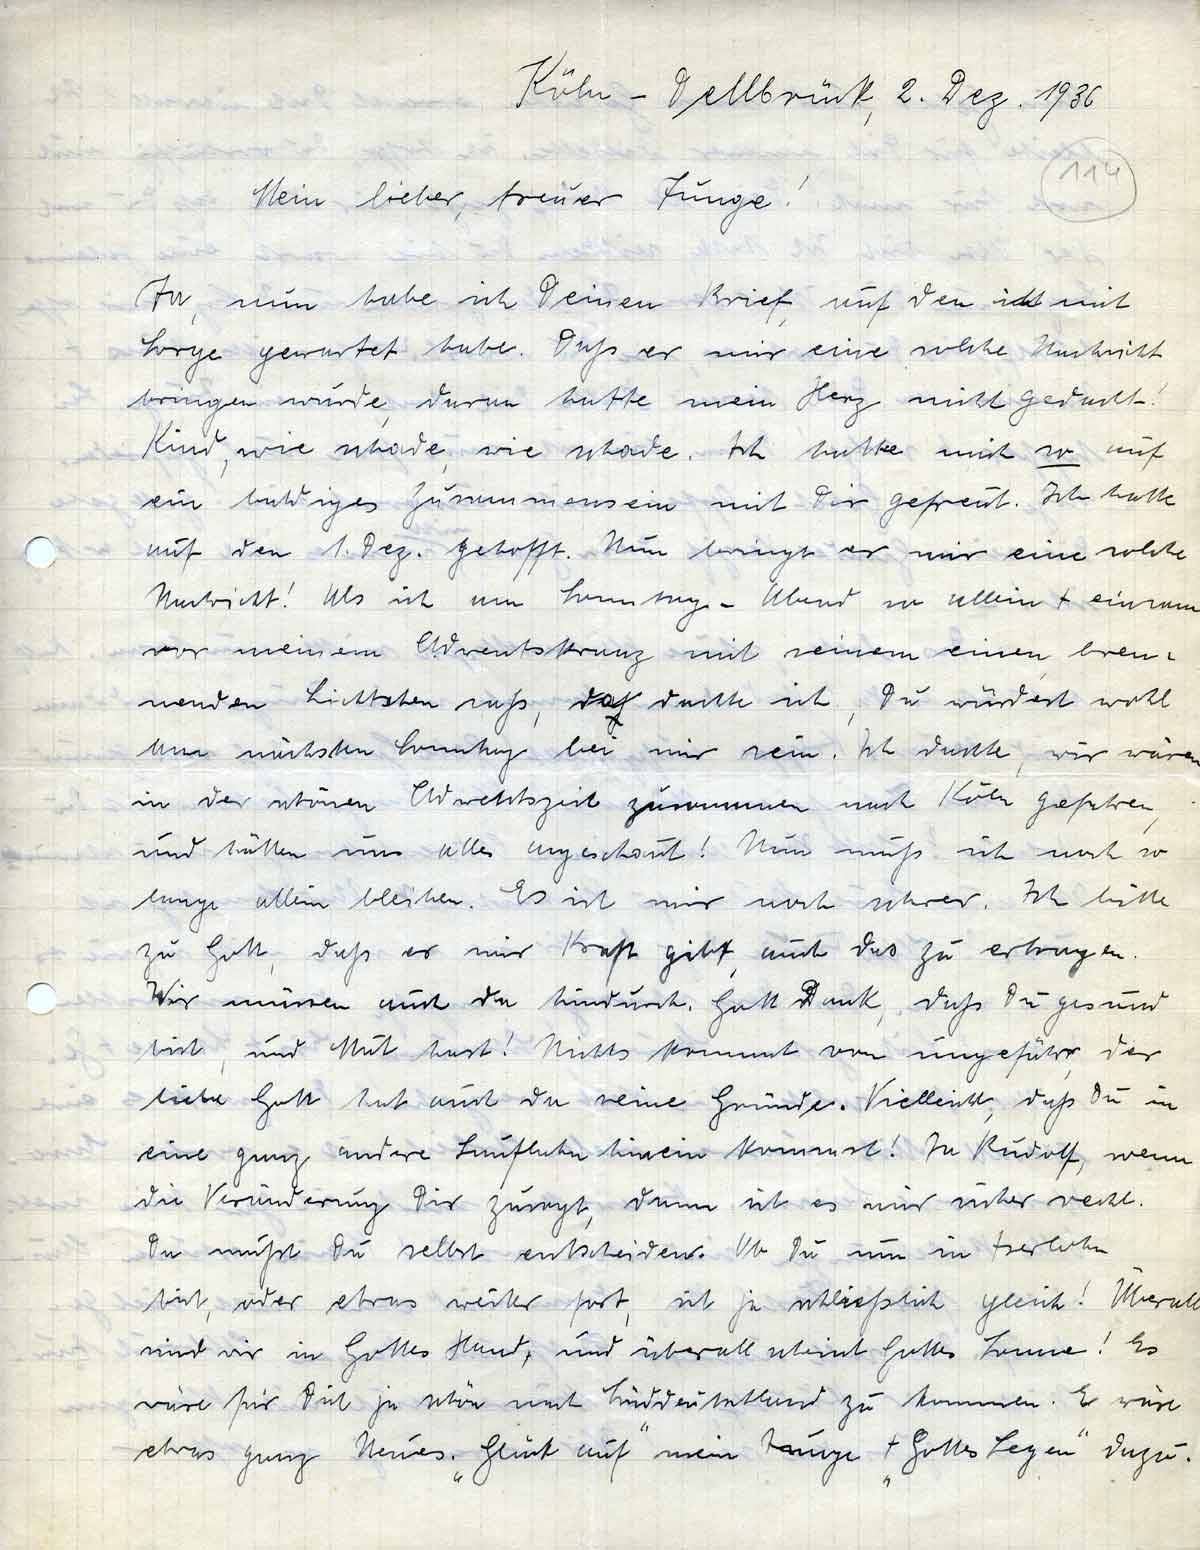 Köln - Dellbrück, 2. Dez. 1936
114
Mein lieber, treuer Junge!
Ja, nun habe ich Deinen Brief, auf den ich mit
Sorge gewartet habe. Daß er mir eine solche Nachricht
bringen würde, daran hatte mein Herz nicht gedacht!
Kind, wie schade, wie schade. Ich hatte mich so auf
ein baldiges Zusammensein mit Dir gefreut. Ich hatte
auf den 1. Dez. gehofft. Nun bringt er mir eine solche
Nachricht! Als ich am Sonntag-Abend so allein + einsam
vor meinem Adventskranz mit seinem einen, bren-
nenden Lichtchen saß, da dachte ich, Du würdest wohl
am nächsten Sonntag bei mir sein. Ich dachte, wir wären
in der schönen Adventszeit zusammen nach Köln gefahren,
und hätten uns alles angeschaut! Nun muß ich noch so
lange allein bleiben. Es ist mir noch schwer. Ich bitte
zu Gott, daß er mir Kraft gibt, auch das zu ertragen.
Wir müssen auch da hindurch. Gott Dank, daß Du gesund
bist, und Mut hast! Nichts kommt von ungefähr, der
liebe Gott hat auch da seine Gründe. Vielleicht, daß Du in
eine ganz andere Laufbahn hinein kommst! Ja Rudolf, wenn
die Veränderung Dir zusagt, dann ist es mir sicher recht.
Da mußt Du selbst entscheiden. Ob Du nun in Iserlohn
bist, oder etwas weiter fort, ist ja schließlich gleich! Überall
sind wir in Gottes Hand, und überall scheint Gottes Sonne! Es
wäre für Dich ja schön nach Süddeutschland zu kommen. Es wäre
etwas ganz Neues. „Glück auf" mein Junge + „Gottes Segen" dazu.